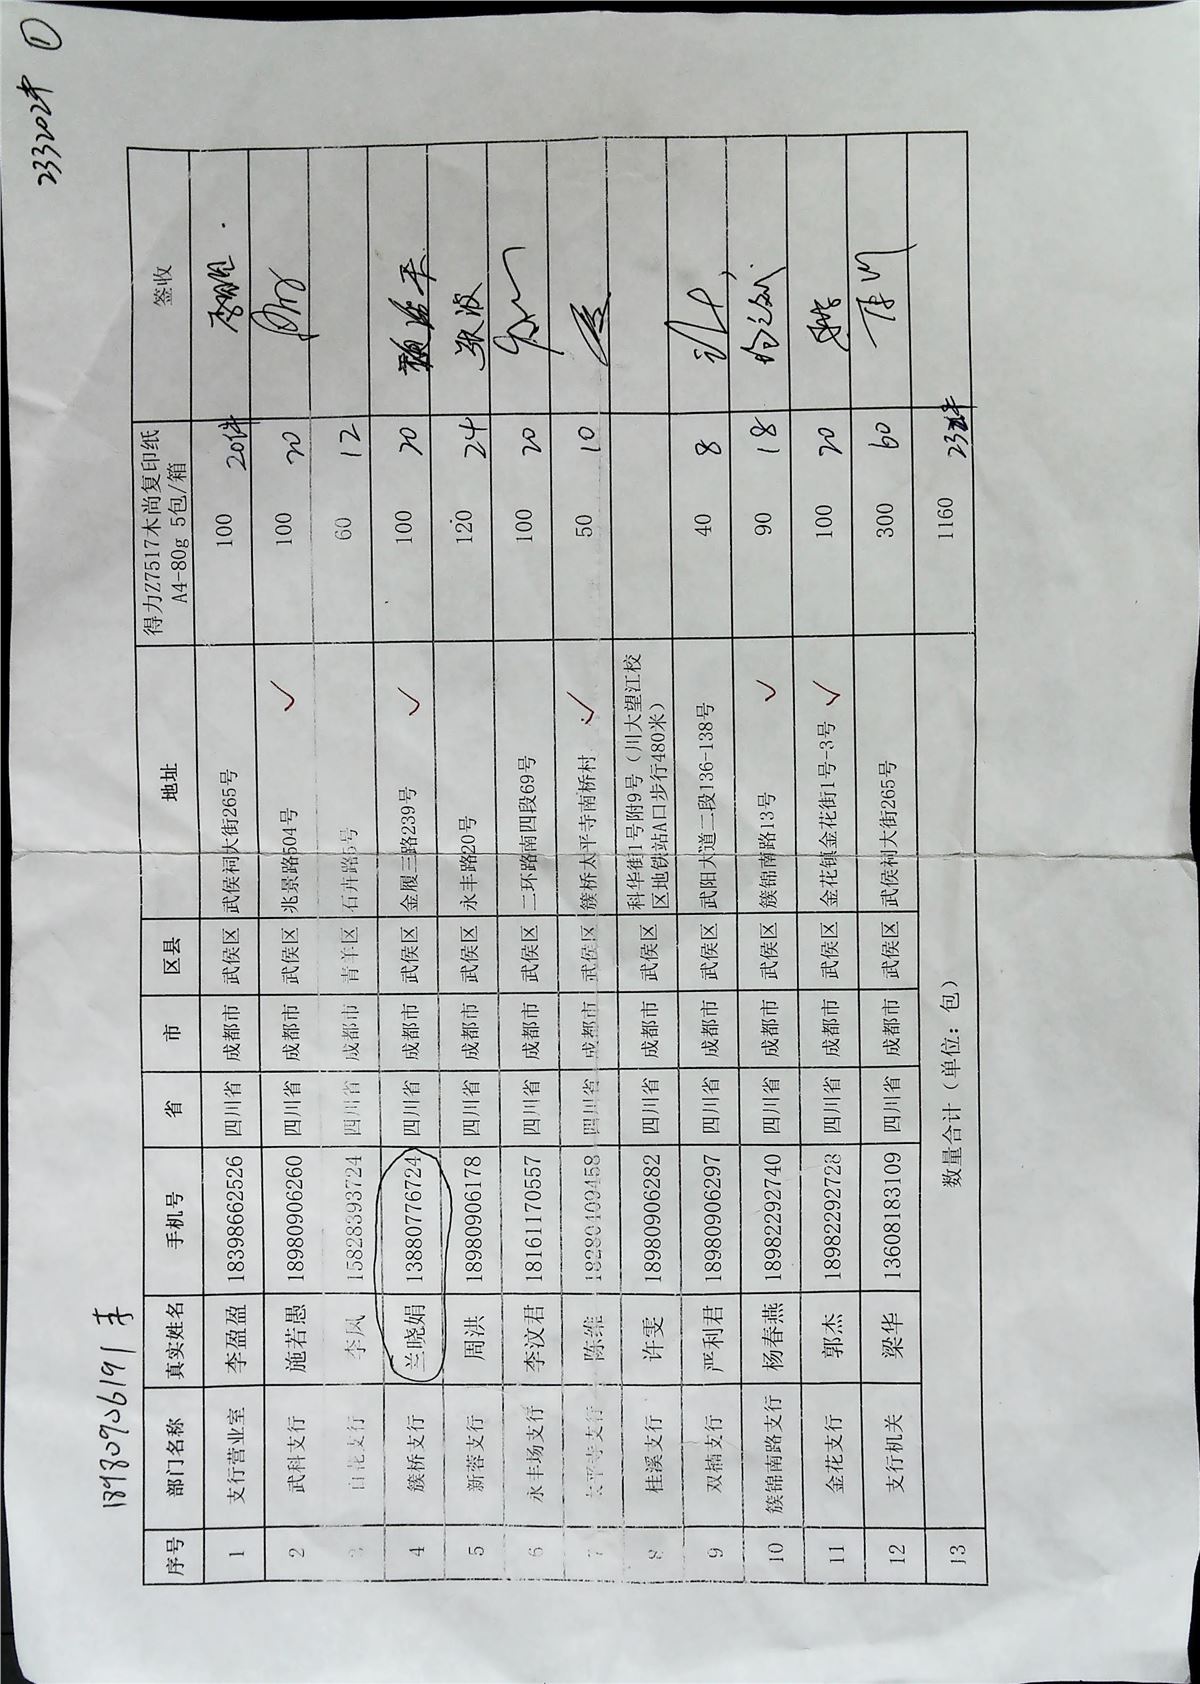 18980906191 233202件 ①
序号 部门名称 真实姓名 手机号 省 市 区县 地址 得力Z7517木尚复印纸 A4-80g 5包/箱 签收
1 支行营业室 李盈盈 18398662526 四川省 成都市 武侯区 武侯祠大街265号 100 20件
2 武科支行 施若愚 18980906260 四川省 成都市 武侯区 兆景路504号 ✓ 100 20
3 百花支行 李凤 15828393724 四川省 成都市 青羊区 石卉路5号 60 12
4 簇桥支行 兰晓娟 13880776724 四川省 成都市 武侯区 金履三路239号 ✓ 100 20
5 新蓉支行 周洪 18980906178 四川省 成都市 武侯区 永丰路20号 120 24 张波
6 永丰场支行 李汶君 18161170557 四川省 成都市 武侯区 二环路南四段69号 100 20
7 太平寺支行 陈维 18280409458 四川省 成都市 武侯区 簇桥太平寺南桥村 ✓ 50 10
8 桂溪支行 许雯 18980906282 四川省 成都市 武侯区 科华街1号附9号（川大望江校
区地铁站A口步行480米）
9 双楠支行 严利君 18980906297 四川省 成都市 武侯区 武阳大道二段136-138号 40 8
10 簇锦南路支行 杨春燕 18982292740 四川省 成都市 武侯区 簇锦南路13号 ✓ 90 18
11 金花支行 郭杰 18982292728 四川省 成都市 武侯区 金花镇金花街1号-3号 ✓ 100 20
12 支行机关 梁华 13608183109 四川省 成都市 武侯区 武侯祠大街265号 300 60
13 数量合计（单位：包） 1160